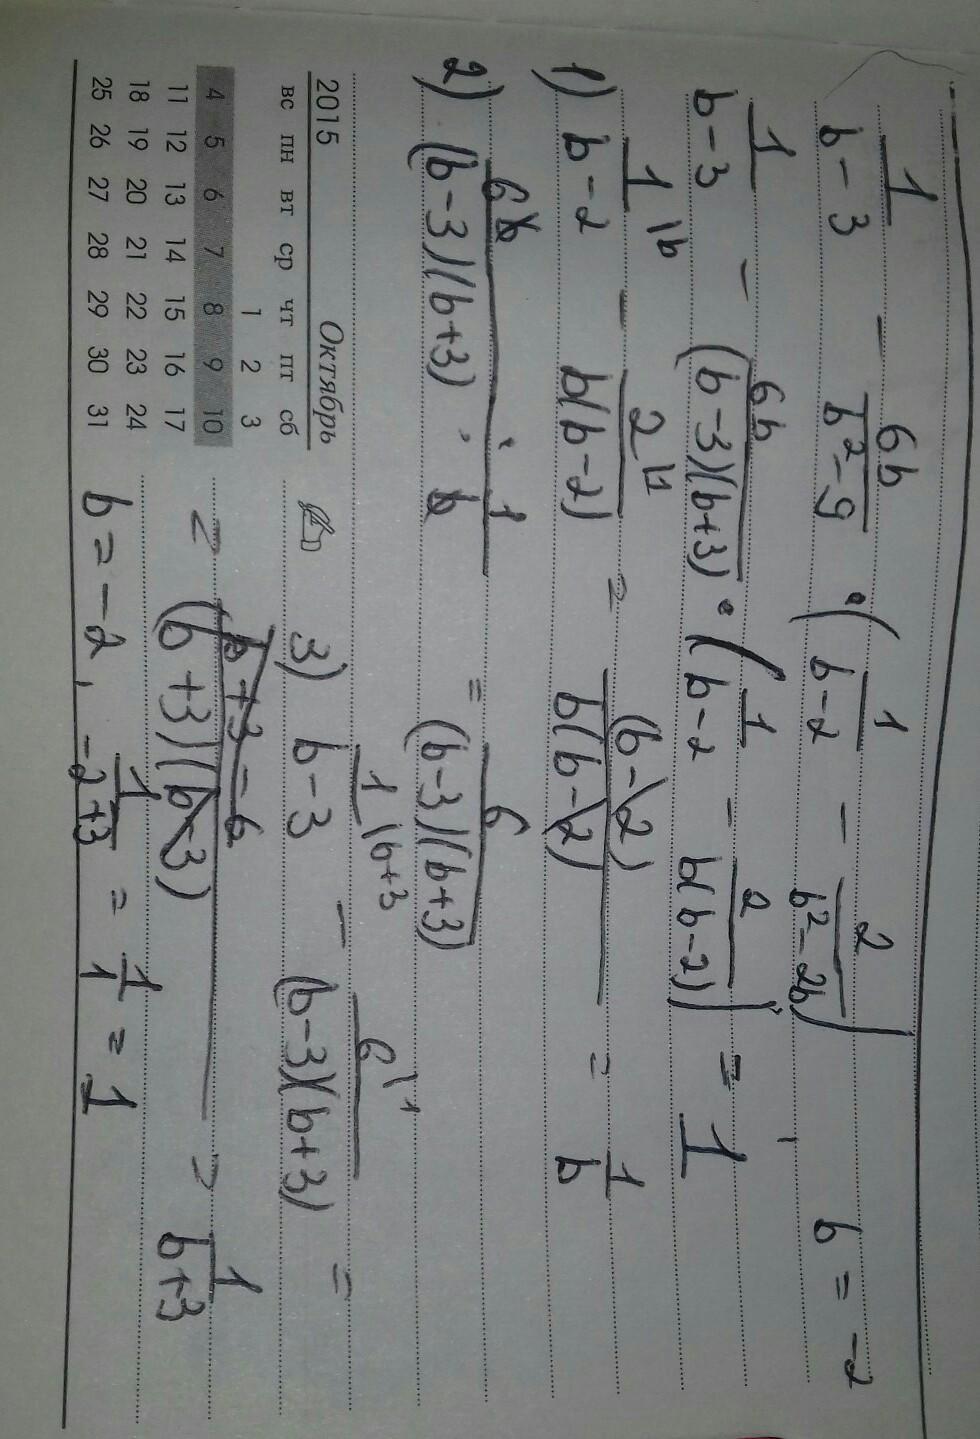 1/(b-3) - 6b/(b²-9) · (1/(b-2) - 2/(b²-2b)) b = -2
1/(b-3) - 6b/((b-3)(b+3)) · (1/(b-2) - 2/(b(b-2))) = 1
1) 1\b/(b-2) - 2\1/(b(b-2)) = (b-2)/(b(b-2)) = 1/b
2) 6b/((b-3)(b+3)) · 1/b = 6/((b-3)(b+3))
3) 1\b+3/(b-3) - 6\1/((b-3)(b+3)) =
= (b+3-6)/((b+3)(b-3)) = 1/(b+3)
b = -2, 1/(-2+3) = 1/1 = 1
2015 Октябрь
вс пн вт ср чт пт сб
1 2 3
4 5 6 7 8 9 10
11 12 13 14 15 16 17
18 19 20 21 22 23 24
25 26 27 28 29 30 31